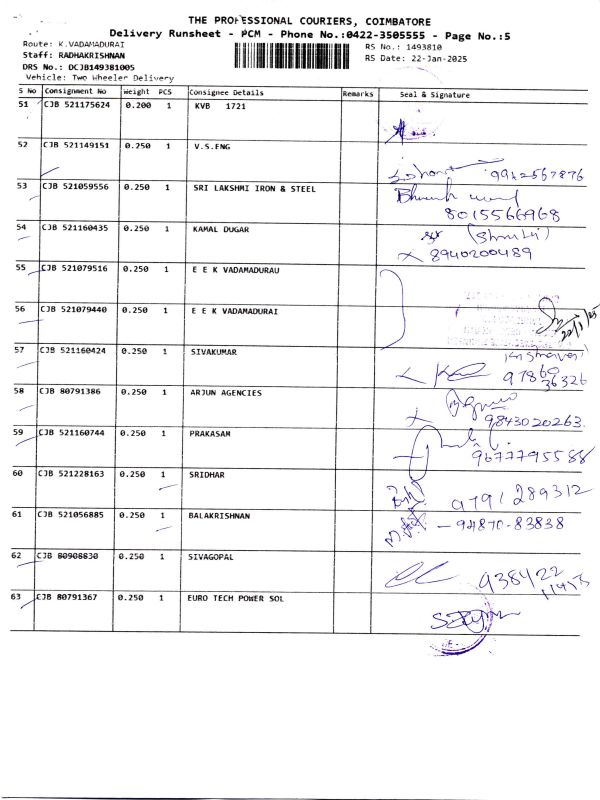 THE PROFESSIONAL COURIERS, COIMBATORE
Delivery Runsheet - PCM - Phone No.:0422-3505555 - Page No.:5
Route: K.VADAMADURAI
RS No.: 1493810
Staff: RADHAKRISHNAN
RS Date: 22-Jan-2025
DRS No.: DCJB149381005
Vehicle: Two Wheeler Delivery
S No Consignment No Weight PCS Consignee Details Remarks Seal & Signature
51 CJB 521175624 0.200 1 KVB 1721
52 CJB 521149151 0.250 1 V.S.ENG
53 CJB 521059556 0.250 1 SRI LAKSHMI IRON & STEEL
8015566968
54 CJB 521160435 0.250 1 KAMAL DUGAR
8940200489
55 CJB 521079516 0.250 1 E E K VADAMADURAU
56 CJB 521079440 0.250 1 E E K VADAMADURAI
57 CJB 521160424 0.250 1 SIVAKUMAR
97860
36326
58 CJB 80791386 0.250 1 ARJUN AGENCIES
9843020263
59 CJB 521160744 0.250 1 PRAKASAM
9677795588
60 CJB 521228163 0.250 1 SRIDHAR
9791289312
61 CJB 521056885 0.250 1 BALAKRISHNAN
- 94870-83838
62 CJB 80908830 0.250 1 SIVAGOPAL
938422
11413
63 CJB 80791367 0.250 1 EURO TECH POWER SOL